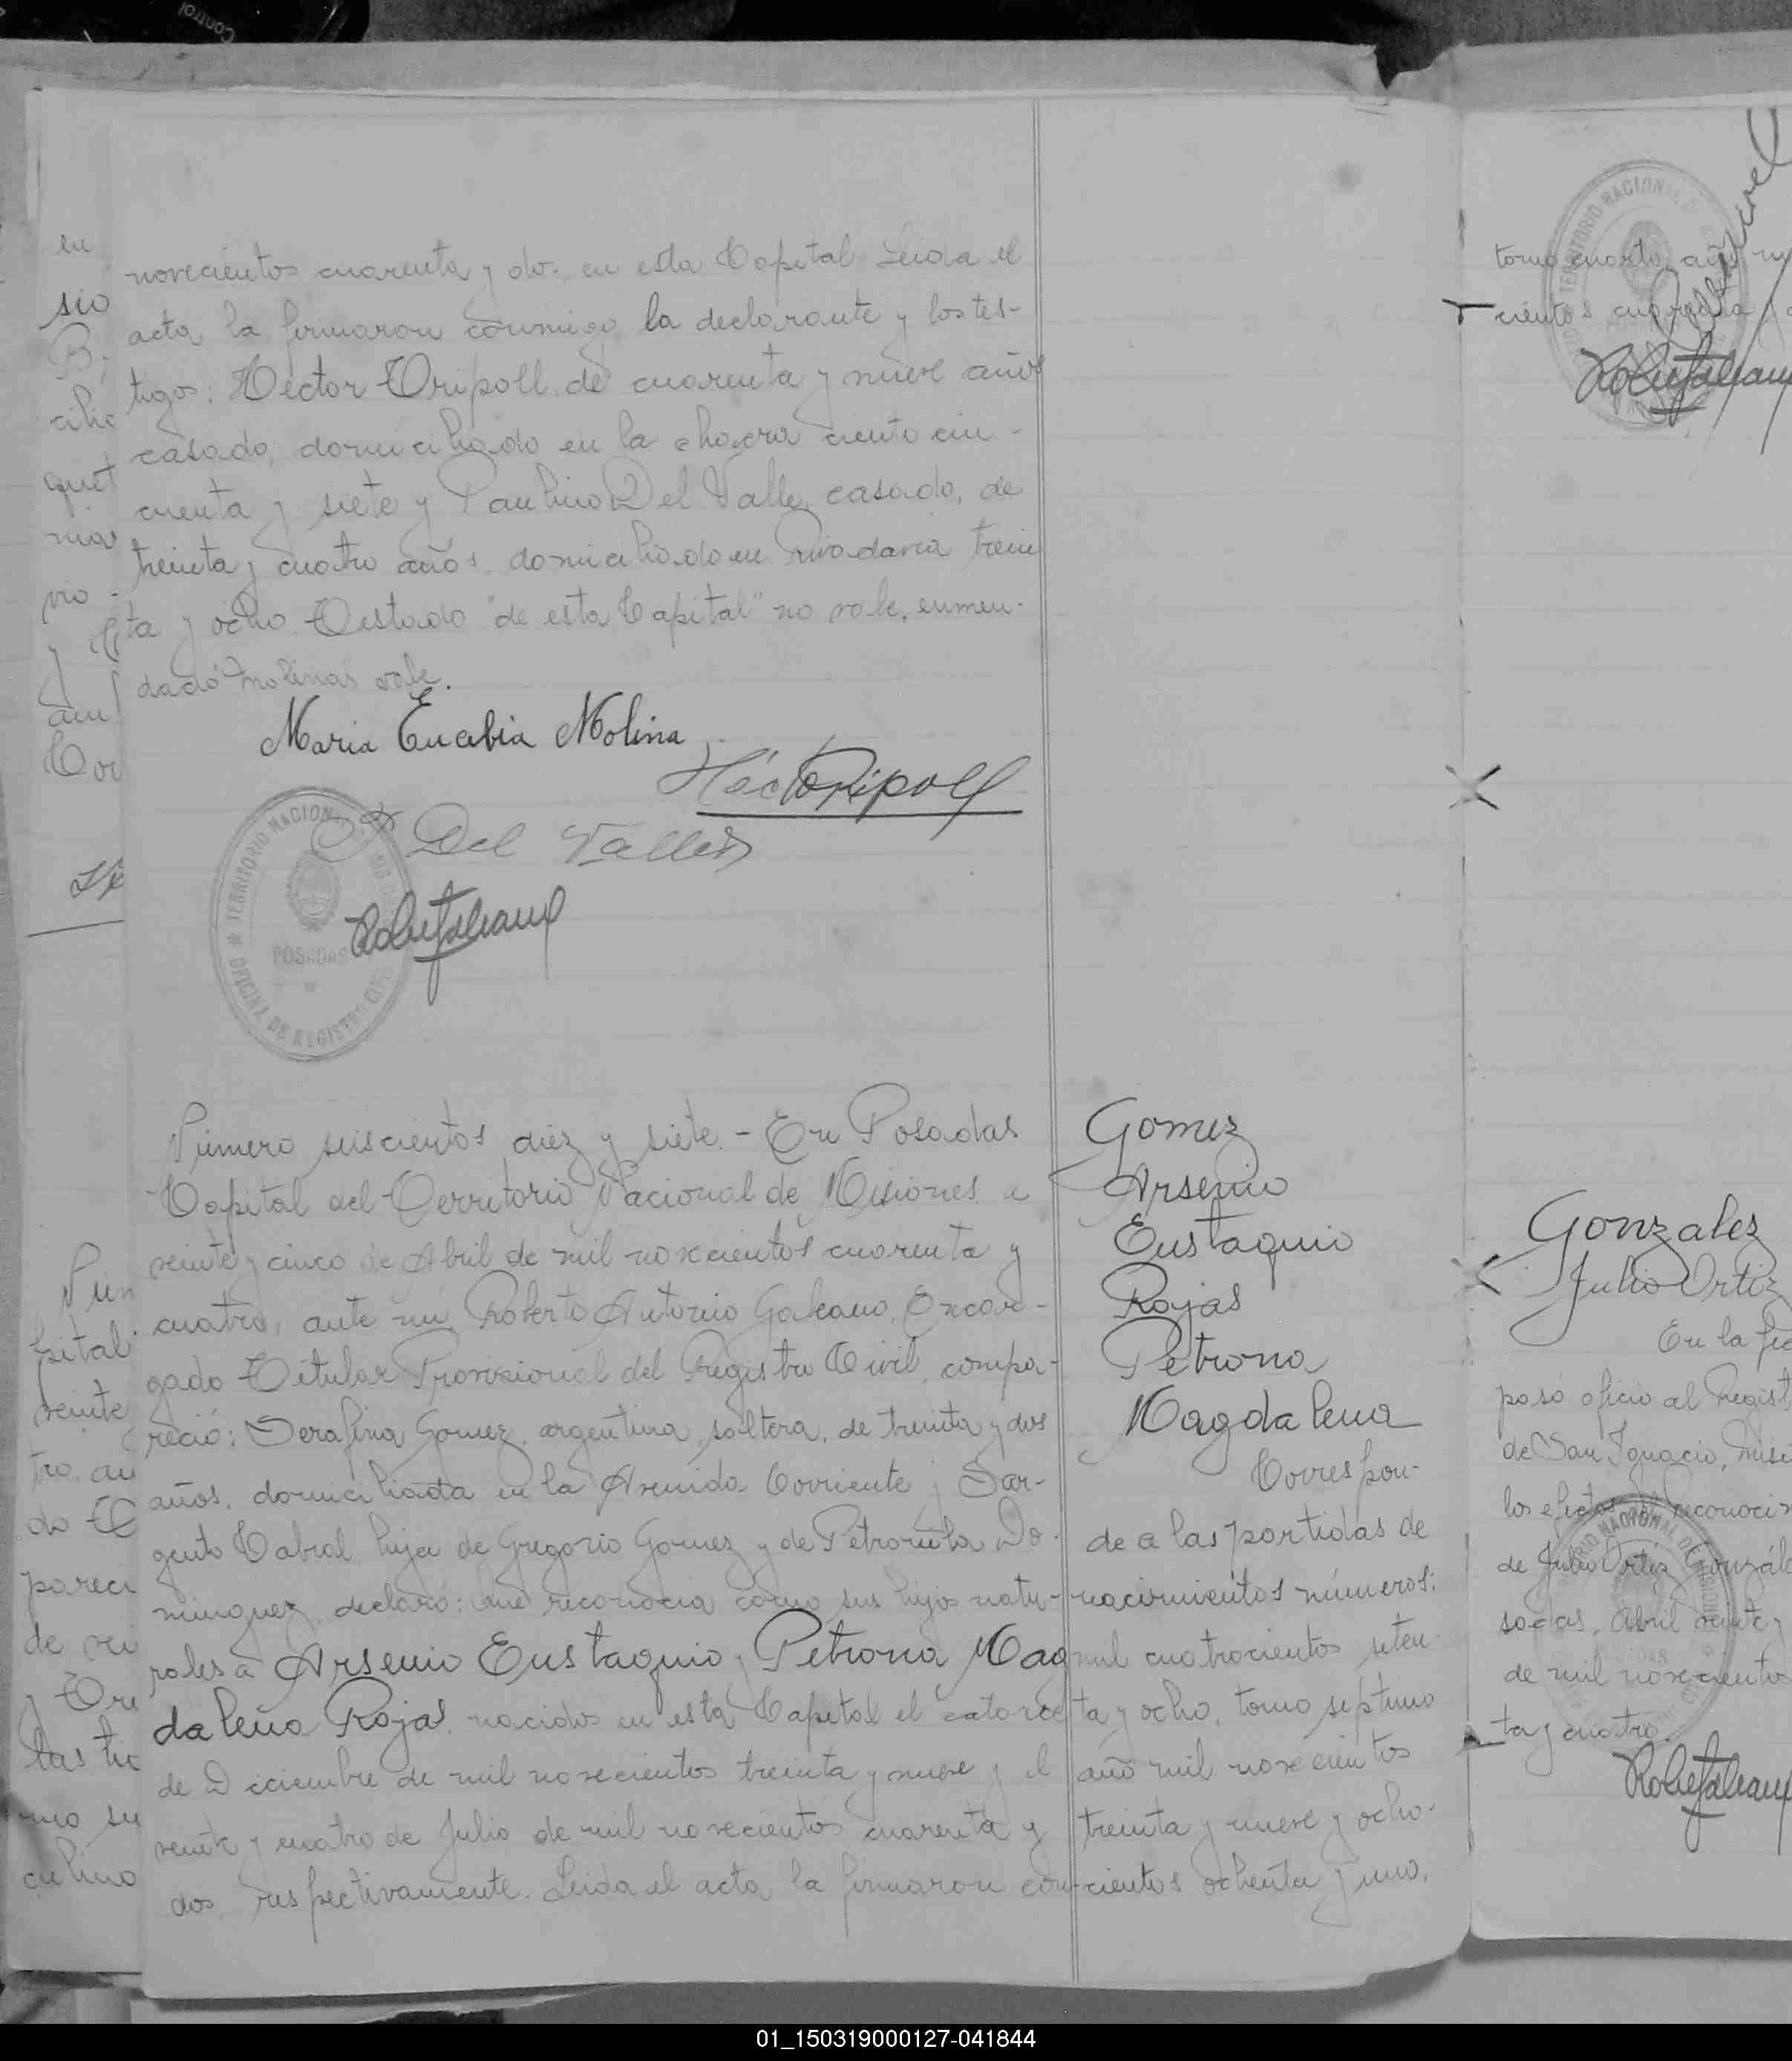 novecientos cuarenta y dos, en esta Capital Leida el
acta la firmaron conmigo la declarante y los tes-
tigos: Héctor Tripoll, de cuarenta y nueve años
casado, domiciliado en la chacra ciento cin-
cuenta y siete y Paulino Del Valle, casado, de
treinta y cuatro años, domiciliado en Rivadavia trein
ta y ocho. Testado "de esta Capital" no vale, enmen-
dado Molinas vale.
Maria Eucebia Molina
Héctor Ripoll
P Del Valle
TERRITORIO NACIONAL DE MISIONES
POSADAS
OFICINA DE REGISTRO CIVIL
Número seiscientos diez y siete - En Posadas
Capital del Territorio Nacional de Misiones a
veinte y cinco de Abril de mil novecientos cuarenta y
cuatro, ante mí, Roberto Antonio Galeano, Encar-
gado Titular Provisional del Registro Civil, compa-
reció: Serafina Gomez, argentina, soltera, de treinta y dos
años, domiciliada en la Avenida Corriente y Sar-
gento Cabral hija de Gregorio Gomez y de Petronila Do-
minguez, declaró: Que reconocia como sus hijos natu-
rales a Arsenio Eustaquio y Petrona Mag
dalena Rojas, nacidos en esta Capital el catorce
de Diciembre de mil novecientos treinta y nueve y el
veinte y cuatro de Julio de mil novecientos cuarenta y
dos, respectivamente. Leida el acta la firmaron con-
Gomez
Arsenio
Eustaquio
Rojas
Petrona
Magdalena
Correspon-
de a las partidas de
nacimientos números:
mil cuatrocientos seten-
ta y ocho, tomo septimo
año mil novecientos
treinta y nueve y ocho-
cientos ochenta y uno,
tomo cuarto, año
cientos cuarenta
Gonzalez
Julio Ortiz
En la fec
pasó oficio al Regist
de San Ignacio, Misi
los efectos del reconoci
de Julio Ortiz Gonzál
sadas, Abril veinte y
de mil novecientos
ta y cuatro.
01_150319000127-041844